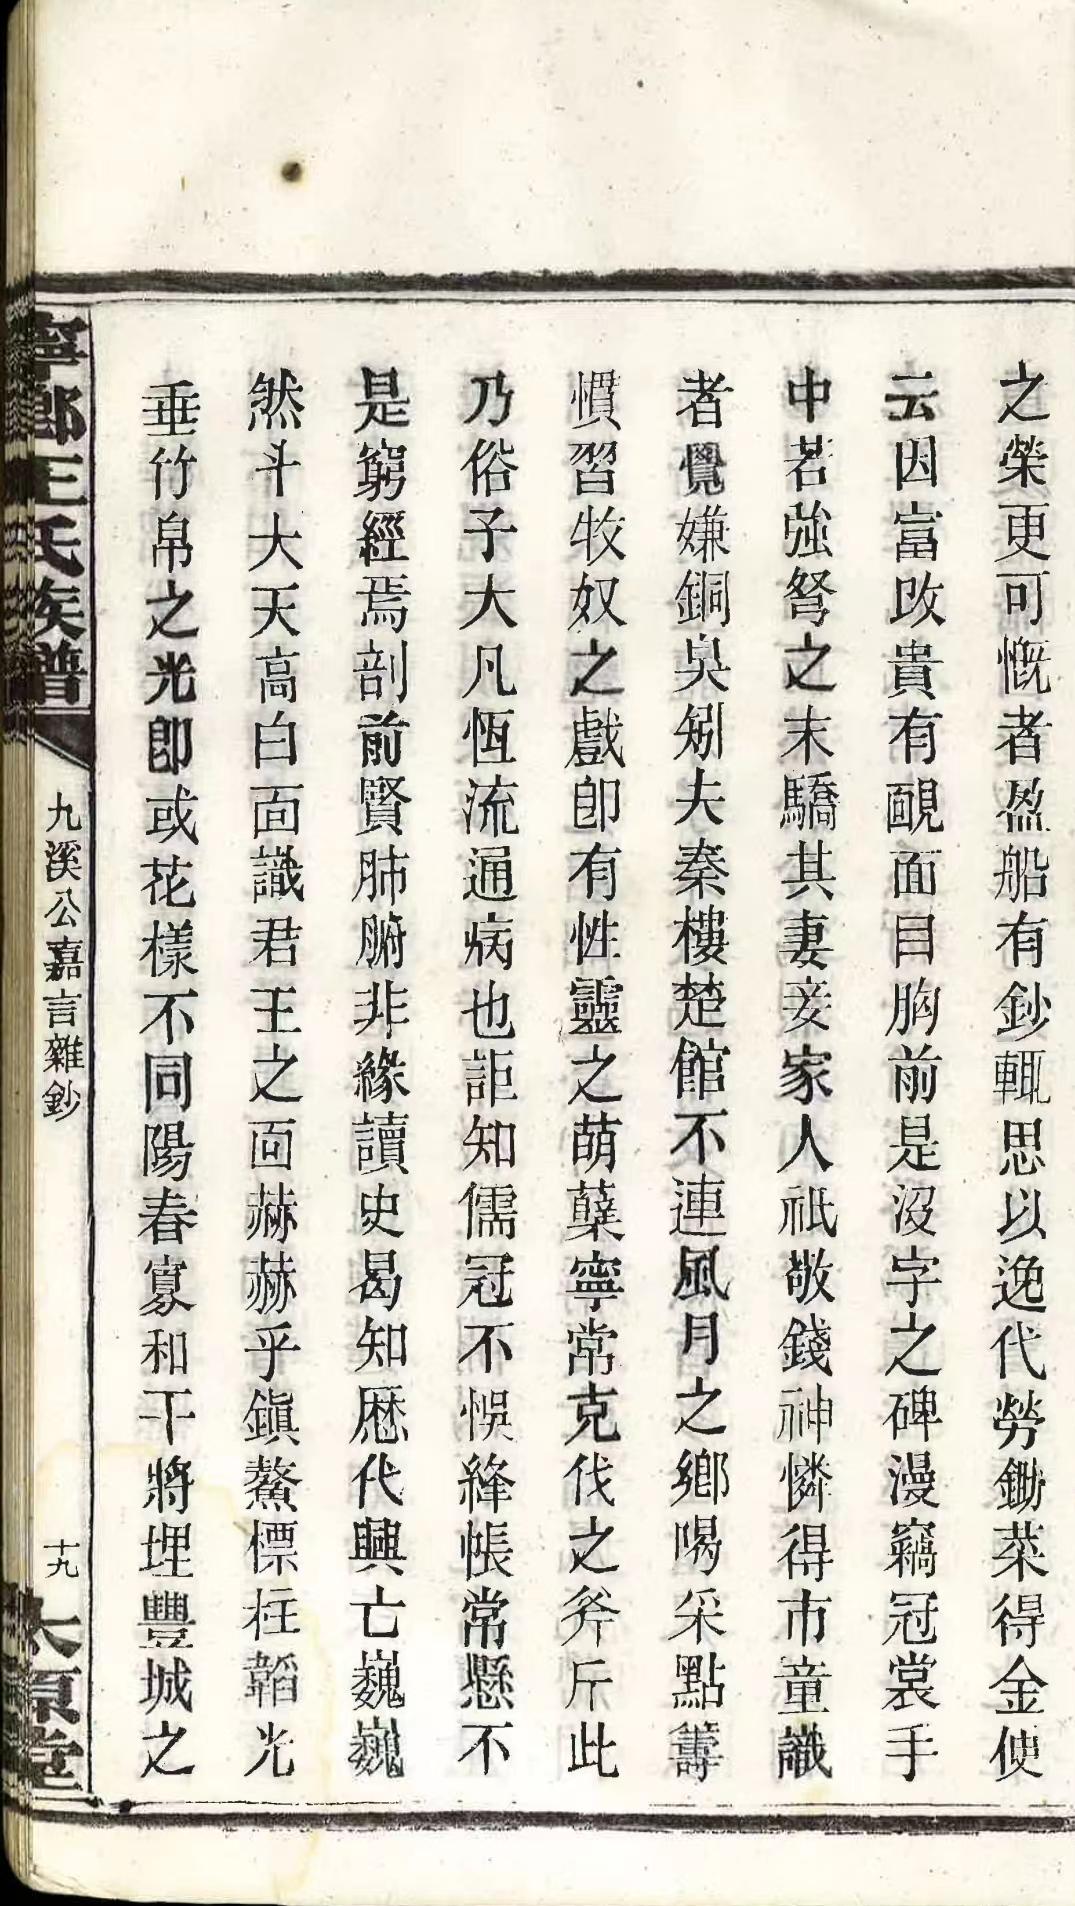 之榮更可慨者盈船有鈔輒思以逸代勞鋤菜得金使
云因富改貴有靦面目胸前是沒字之碑漫竊冠裳手
中若強弩之末驕其妻妾家人祇敬錢神憐得市童識
者覺嫌銅臭矧夫秦樓楚館不連風月之鄉喝采點籌
慣習牧奴之戲卽有性靈之萌蘖寧常克伐之斧斤此
乃俗子大凡恆流通病也詎知儒冠不悞絳帳常懸不
是窮經焉剖前賢肺腑非緣讀史曷知歷代興亡巍巍
然斗大天高白面識君王之面赫赫乎鎭鰲標柱韜光
垂竹帛之光卽或花樣不同陽春寡和干將埋豐城之
寧鄉王氏族譜
九溪公嘉言雜鈔
十九
太原堂